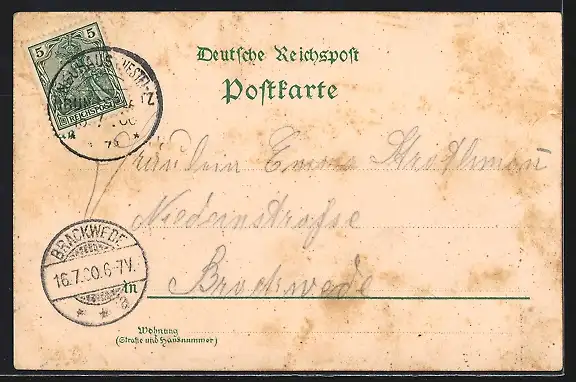 5 5
REICHSPOST
Deutsche Reichspost
Postkarte
Fräulein Emma Strothmann
Niedernstrasse
BRACKWEDE
16.7.00.6-7V.
In Brackwede
Wohnung
(Straße und Hausnummer)